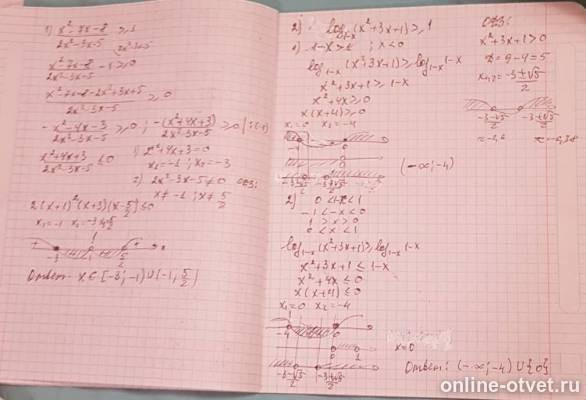 1) x² - 7x - 8 / 2x² - 3x - 5 ≥ 1
x² - 7x - 8 / 2x² - 3x - 5 - 1 ≥ 0
x² - 7x - 8 - 2x² + 3x + 5 / 2x² - 3x - 5 ≥ 0
-x² - 4x - 3 / 2x² - 3x - 5 ≥ 0 ; -(x² + 4x + 3) / 2x² - 3x - 5 ≥ 0 | :(-1)
x² + 4x + 3 / 2x² - 3x - 5 ≤ 0
1) x² + 4x + 3 = 0
x₁ = -1 ; x₂ = -3
2) 2x² - 3x - 5 ≠ 0
x ≠ -1 ; x ≠ 5/2
2(x+1)²(x+3)(x - 5/2) ≤ 0
Ответ: x ∈ [-3; -1) ∪ (-1; 5/2)
2) log₁₋ₓ (x² + 3x + 1) ≥ 1
1) 1 - x > 1 ; x < 0
log₁₋ₓ (x² + 3x + 1) ≥ log₁₋ₓ 1-x
x² + 3x + 1 ≥ 1 - x
x² + 4x ≥ 0
x(x+4) ≥ 0
x₁ = 0 x₂ = -4
(-∞; -4)
2) 0 < 1-x < 1
-1 < -x < 0
1 > x > 0
0 < x < 1
log₁₋ₓ (x² + 3x + 1) ≥ log₁₋ₓ 1-x
x² + 3x + 1 ≤ 1 - x
x² + 4x ≤ 0
x(x+4) ≤ 0
x₁ = 0 x₂ = -4
x = 0
Ответ: (-∞; -4) ∪ {0}
ОДЗ:
x² + 3x + 1 > 0
D = 9 - 4 = 5
x₁,₂ = -3 ± √5 / 2
-3-√5 / 2 -3+√5 / 2
≈ -2,6 ≈ -0,38
online-otvet.ru